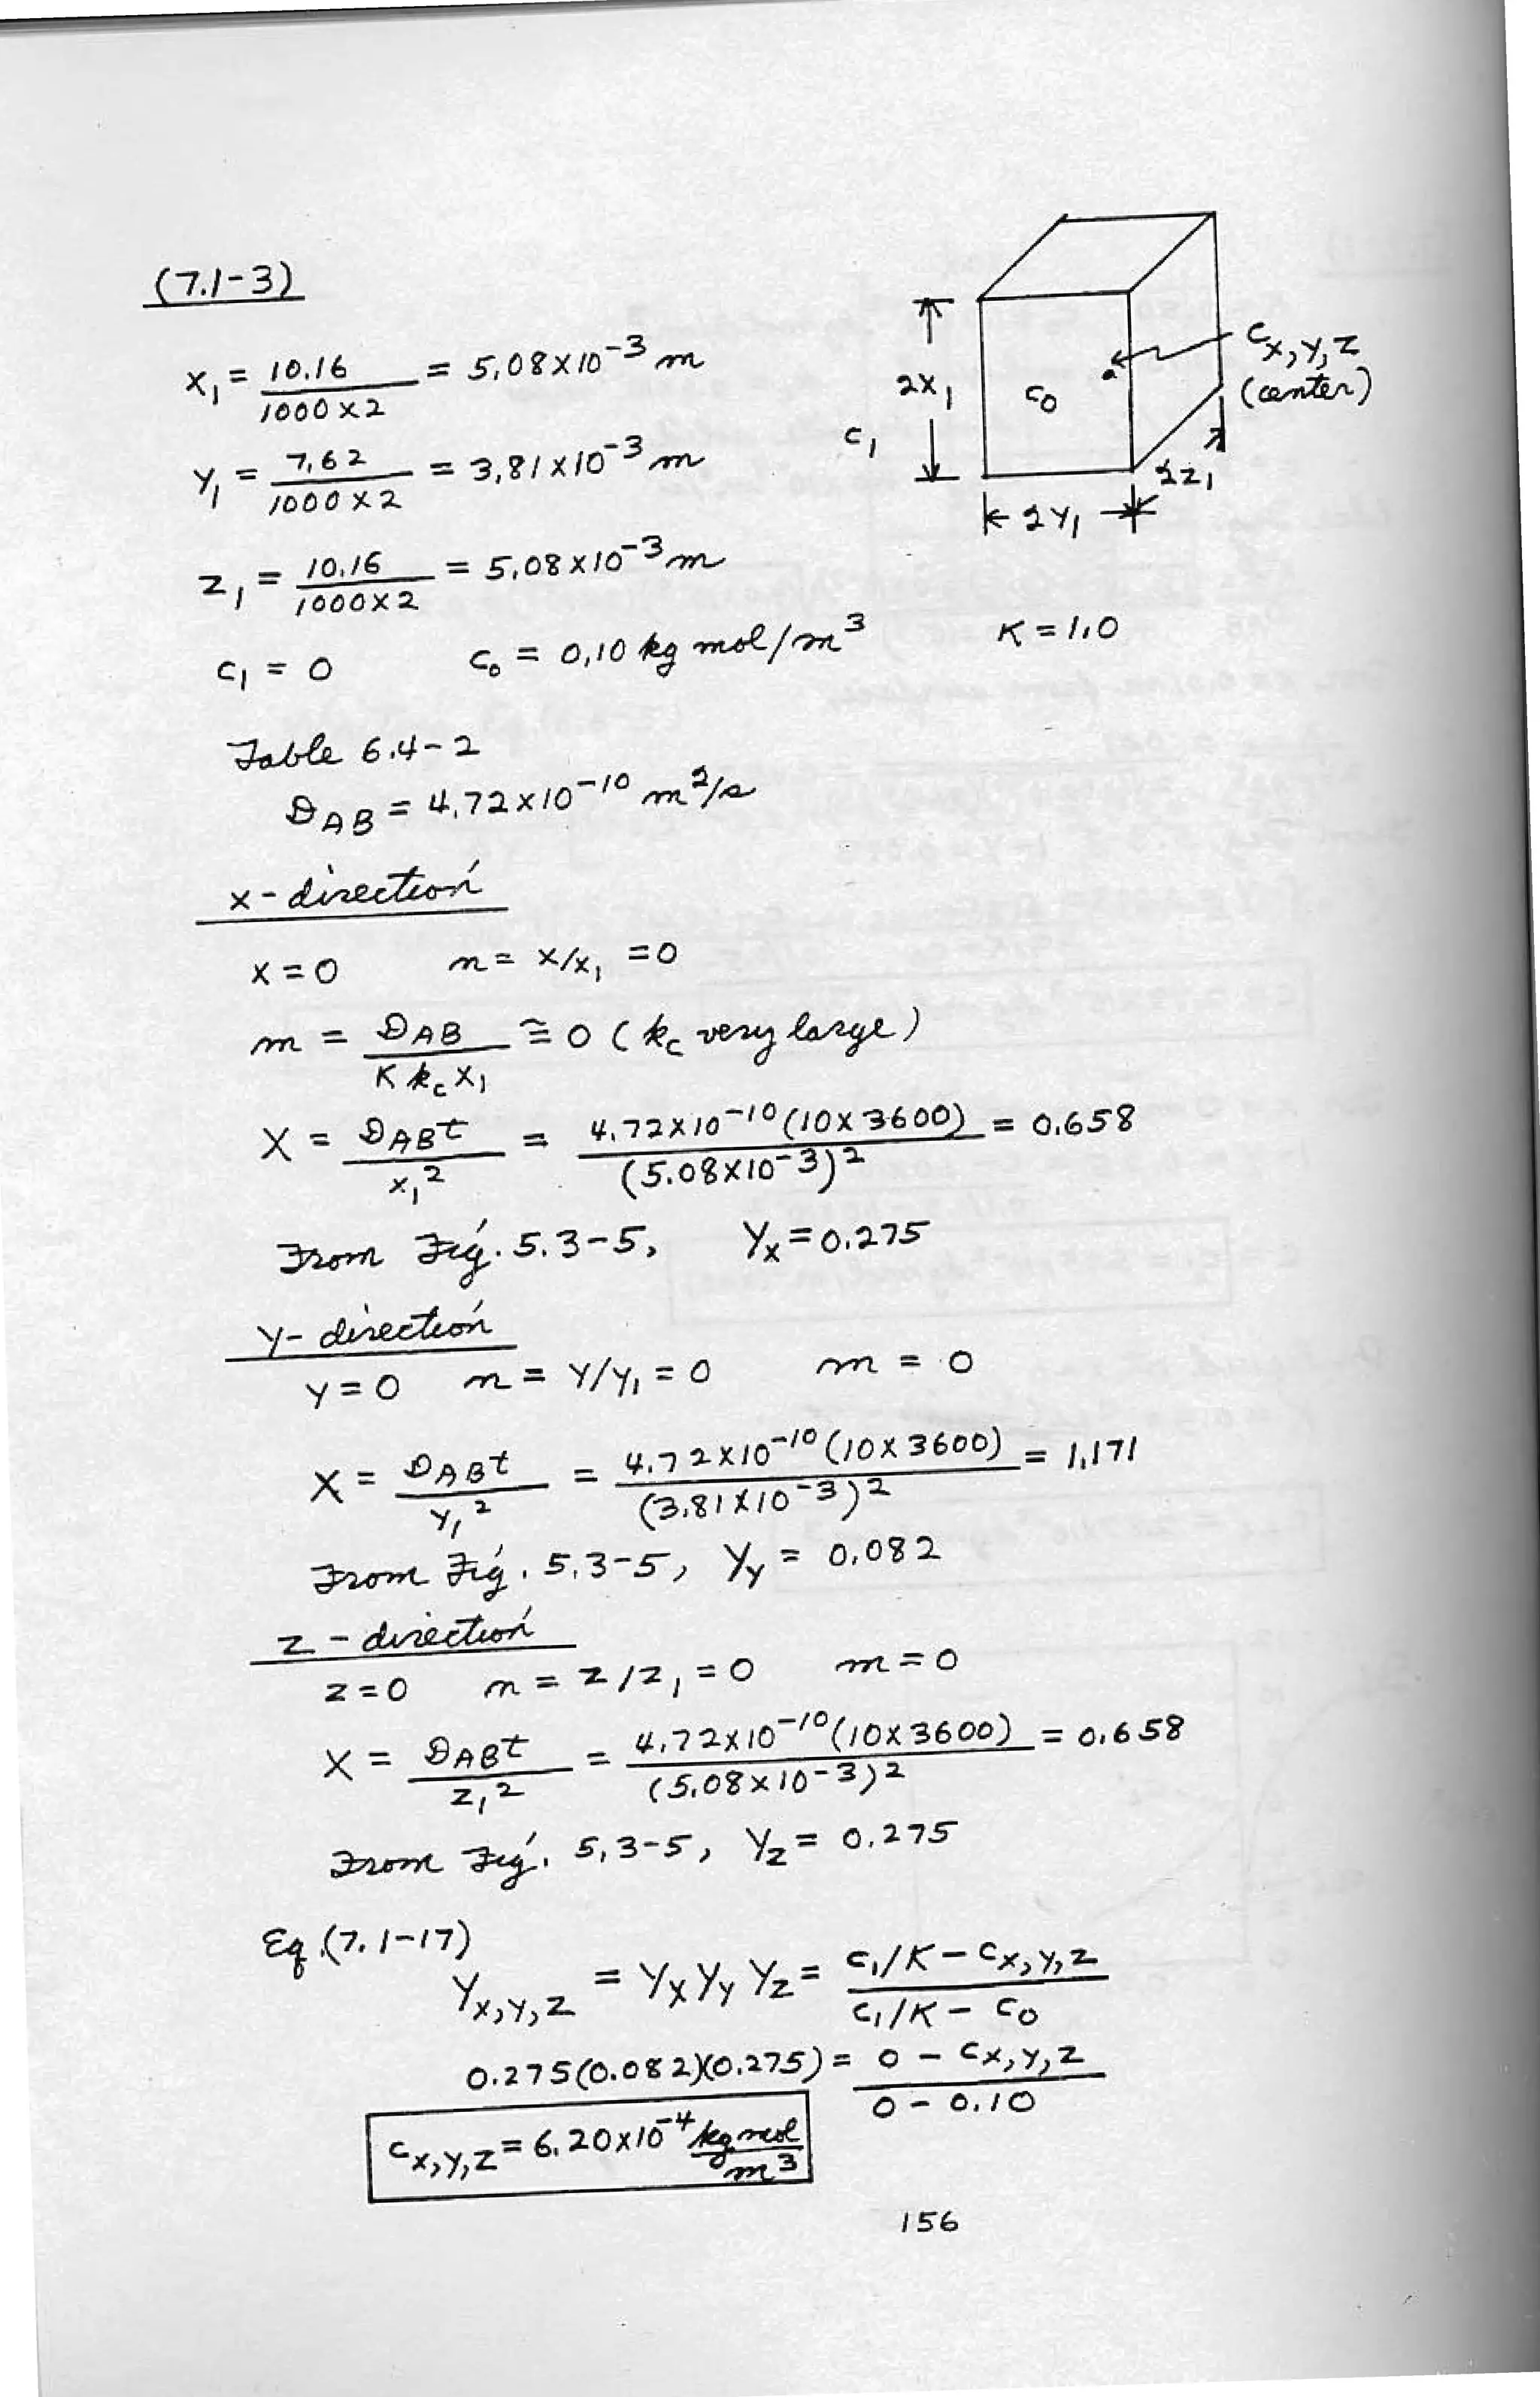 (7.1-3)
x₁ = 10.16 / 1000 x 2 = 5.08 x 10⁻³ m
y₁ = 7.62 / 1000 x 2 = 3.81 x 10⁻³ m
z₁ = 10.16 / 1000 x 2 = 5.08 x 10⁻³ m
2x₁
c₁
c₀
c x,y,z
(center)
2z₁
2y₁
c₁ = 0 c₀ = 0.10 kg mol/m³ K = 1.0
Table 6.4-2
D_AB = 4.72 x 10⁻¹⁰ m²/s
x-direction
x = 0 n = x/x₁ = 0
m = D_AB / K k_c x₁ ≅ 0 (k_c very large)
X = D_AB t / x₁² = 4.72 x 10⁻¹⁰ (10 x 3600) / (5.08 x 10⁻³)² = 0.658
From Fig. 5.3-5, Y_x = 0.275
y-direction
y = 0 n = y/y₁ = 0 m = 0
X = D_AB t / y₁² = 4.72 x 10⁻¹⁰ (10 x 3600) / (3.81 x 10⁻³)² = 1.171
From Fig. 5.3-5, Y_y = 0.082
z-direction
z = 0 n = z/z₁ = 0 m = 0
X = D_AB t / z₁² = 4.72 x 10⁻¹⁰ (10 x 3600) / (5.08 x 10⁻³)² = 0.658
From Fig. 5.3-5, Y_z = 0.275
Eq. (7.1-17)
Y_x,y,z = Y_x Y_y Y_z = c₁/K - c_x,y,z / c₁/K - c₀
0.275(0.082)(0.275) = 0 - c_x,y,z / 0 - 0.10
c_x,y,z = 6.20 x 10⁻⁴ kg mol / m³
156